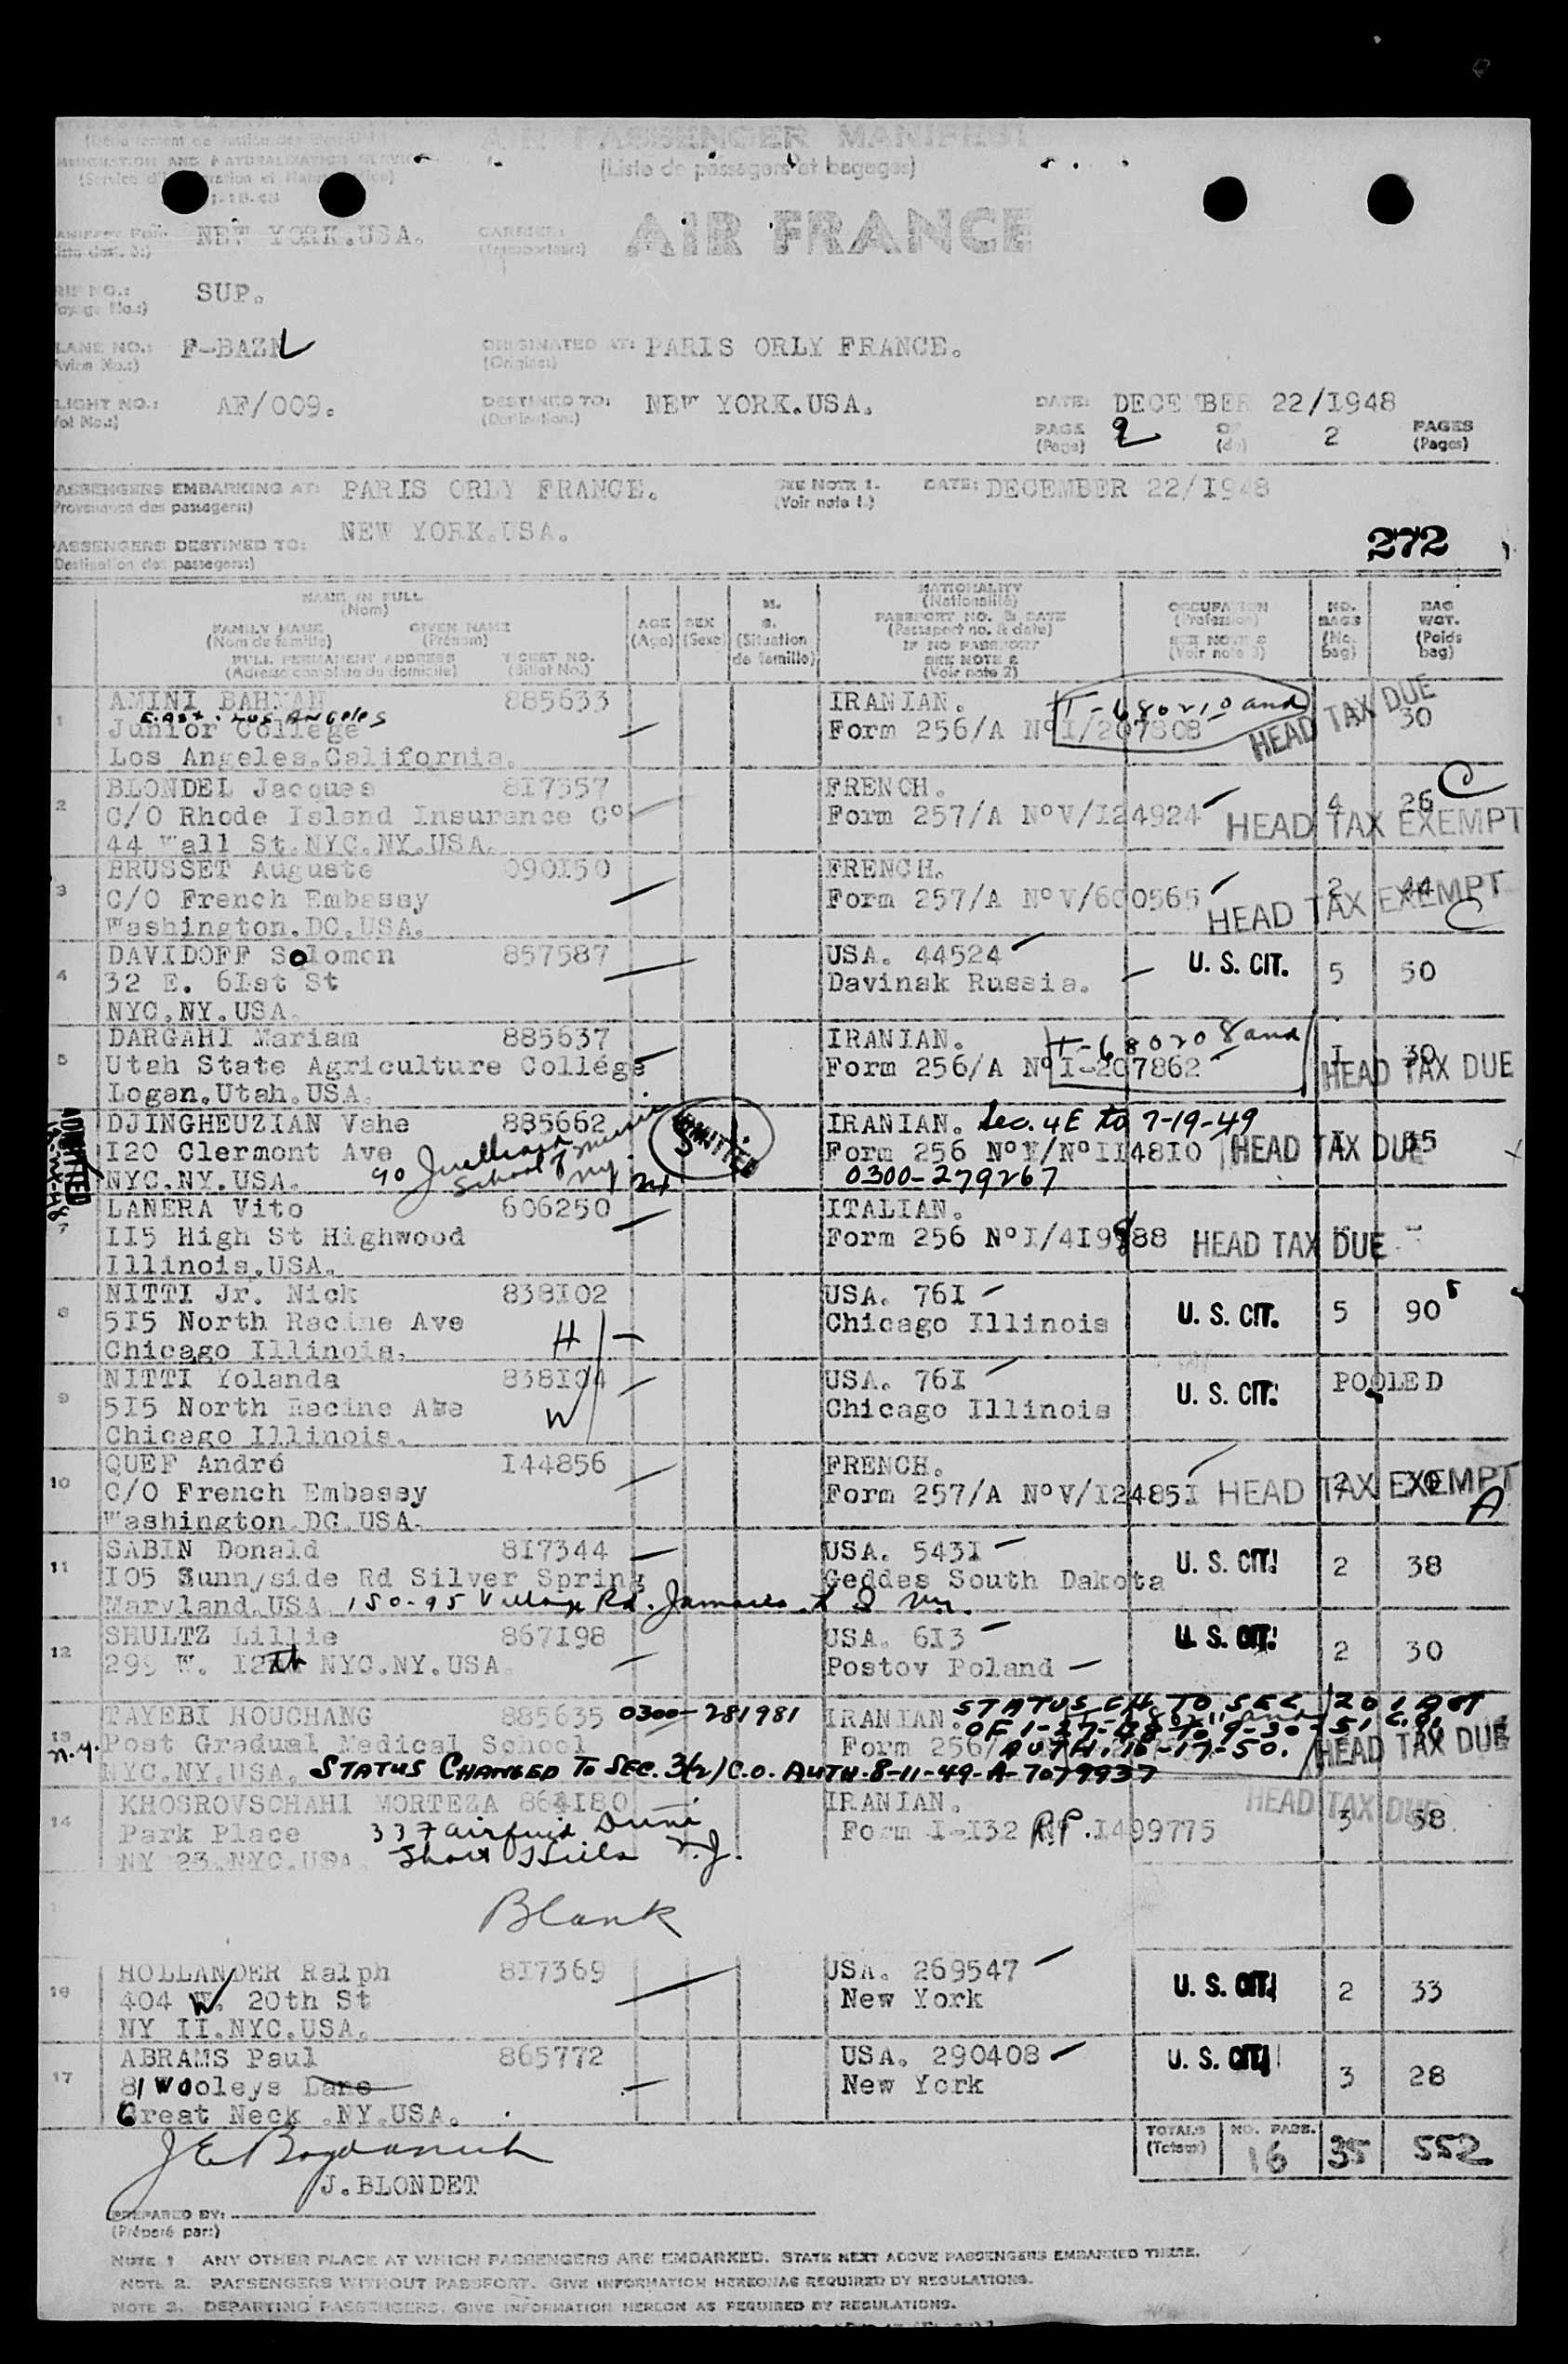 AIR PASSENGER MANIFEST
(Liste de passagers et bagages)
NEW YORK.USA. CARRIER: AIR FRANCE
(Transporteur:)
SUP.
F-BAZL ORIGINATED AT: PARIS ORLY FRANCE.
(Origine:)
AF/009. DESTINED TO: NEW YORK.USA. DATE: DECEMBER 22/I948
(Destination:)
PAGE 2 OF 2 PAGES
(Page) (de) (Pages)
PASSENGERS EMBARKING AT: PARIS ORLY FRANCE. SEE NOTE 1. DATE: DECEMBER 22/I948
(Provenance des passagers:) (Voir note 1.)
PASSENGERS DESTINED TO: NEW YORK.USA.
(Destination des passagers:)
272
NAME IN FULL
(Nom)
FAMILY NAME GIVEN NAME
(Nom de famille) (Prénom)
FULL PERMANENT ADDRESS TICKET NO.
(Adresse complete du domicile) (Billet No.)
AGE SEX M. S.
(Age) (Sexe) (Situation de famille)
NATIONALITY
(Nationalité)
PASSPORT NO. & DATE
(Passeport no. & date)
IF NO PASSPORT
SEE NOTE 2
(Voir note 2)
OCCUPATION
(Profession)
SEE NOTE 3
(Voir note 3)
NO. BAGS
(No. bag)
BAG WGT.
(Poids bag)
1 AMINI BAHMAN 885633 IRANIAN. T-680210 and
East Los Angeles
Junior College Form 256/A Nº I/207808 HEAD TAX DUE 30
Los Angeles.California.
2 BLONDEL Jacques 8I7357 FRENCH. C
C/O Rhode Island Insurance Cº Form 257/A Nº V/I24924 HEAD TAX EXEMPT 4 26
44 Wall St.NYC.NY.USA.
3 BRUSSET Auguste 090I50 FRENCH.
C/O French Embassy Form 257/A Nº V/600565 HEAD TAX EXEMPT 2 44
Washington.DC.USA. C
4 DAVIDOFF Solomon 857587 USA. 44524 U. S. CIT. 5 50
32 E. 6Ist St Davinsk Russia.
NYC.NY.USA.
5 DARGAHI Mariam 885637 IRANIAN. T-680208 and
Utah State Agriculture Collége Form 256/A Nº I-207862 HEAD TAX DUE I 30
Logan.Utah.USA.
ADMITTED
DJINGHEUZIAN Vahe 885662 IRANIAN. Sec. 4E to 7-19-49
I20 Clermont Ave Form 256 Nº I/Nº II48I0 HEAD TAX DUE
NYC.NY.USA. School of Music NY ADMITTED 0300-279267
7 LANERA Vito 606250 ITALIAN.
II5 High St Highwood Form 256 Nº I/4I9888 HEAD TAX DUE
Illinois.USA.
8 NITTI Jr. Nick 838I02 USA. 76I
5I5 North Racine Ave H Chicago Illinois U. S. CIT. 5 90
Chicago Illinois.
9 NITTI Yolanda 838I04 USA. 76I U. S. CIT. POOLED
5I5 North Racine Ave W Chicago Illinois
Chicago Illinois.
10 QUEF André I44856 FRENCH.
C/O French Embassy Form 257/A Nº V/I2485I HEAD TAX EXEMPT 2 30
Washington.DC.USA. A
11 SABIN Donald 8I7344 USA. 543I U. S. CIT. 2 38
I05 Sunnyside Rd Silver Spring Geddes South Dakota
Maryland.USA 150-95 Village Rd. Jamaica L I NY.
12 SHULTZ Lillie 867I98 USA. 6I3 U. S. CIT. 2 30
295 W. I2th NYC.NY.USA. Postov Poland
13 TAYEBI HOUCHANG 885635 0300-281981 IRANIAN. STATUS CH. TO SEC 201 ACT
OF 1-27-48 TO 9-30-51 C.O.
n.y. Post Gradual Medical School Form 256/ AUTH. 10-17-50. HEAD TAX DUE
NYC.NY.USA. STATUS CHANGED TO SEC. 3(2) C.O. AUTH. 8-11-49-A-7079937
14 KHOSROVSCHAHI MORTEZA 864I80 IRANIAN. HEAD TAX DUE
Park Place 337 Drive Form I-I32 R.P. I499775 3 58
NY 23.NYC.USA. Short Hills N.J.
Blank
16 HOLLANDER Ralph 8I7369 USA. 269547
404 W. 20th St New York U. S. CIT. 2 33
NY II.NYC.USA.
17 ABRAMS Paul 865772 USA. 290408 U. S. CIT.
81 Wooleys Lane New York 3 28
Great Neck .NY.USA.
TOTALS NO. PASS. 16 35 552
(Totaux)
J.BLONDET
PREPARED BY:
(Préparé par:)
NOTE 1 ANY OTHER PLACE AT WHICH PASSENGERS ARE EMBARKED. STATE NEXT ABOVE PASSENGERS EMBARKED THERE.
NOTE 2. PASSENGERS WITHOUT PASSPORT. GIVE INFORMATION HEREON AS REQUIRED BY REGULATIONS.
NOTE 3. DEPARTING PASSENGERS. GIVE INFORMATION HEREON AS REQUIRED BY REGULATIONS.